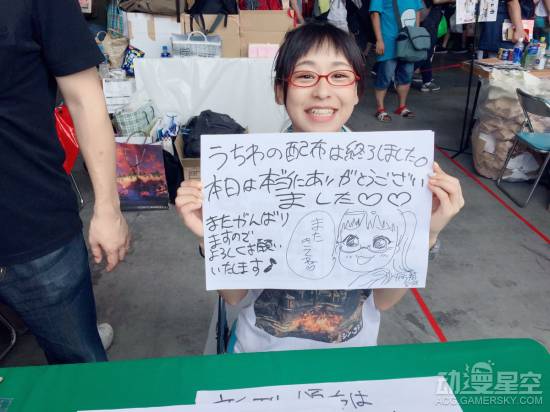 うちわの配布は終了しました。
本日は本当にありがとうござい
ました♡♡
またがんばり
ますので
よろしくお願い
いたします♪
また
动漫星空
ACG.GAMERSKY.COM